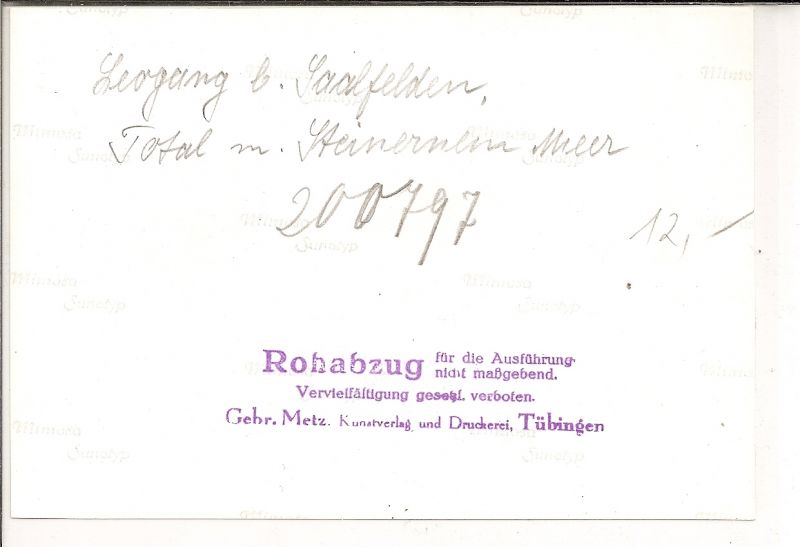 Leogang b. Saalfelden,
Total m. Steinernem Meer
200797
12,-
Rohabzug für die Ausführung
nicht maßgebend.
Vervielfältigung gesetzl. verboten.
Gebr. Metz. Kunstverlag und Druckerei, Tübingen
Mimosa
Sunotyp